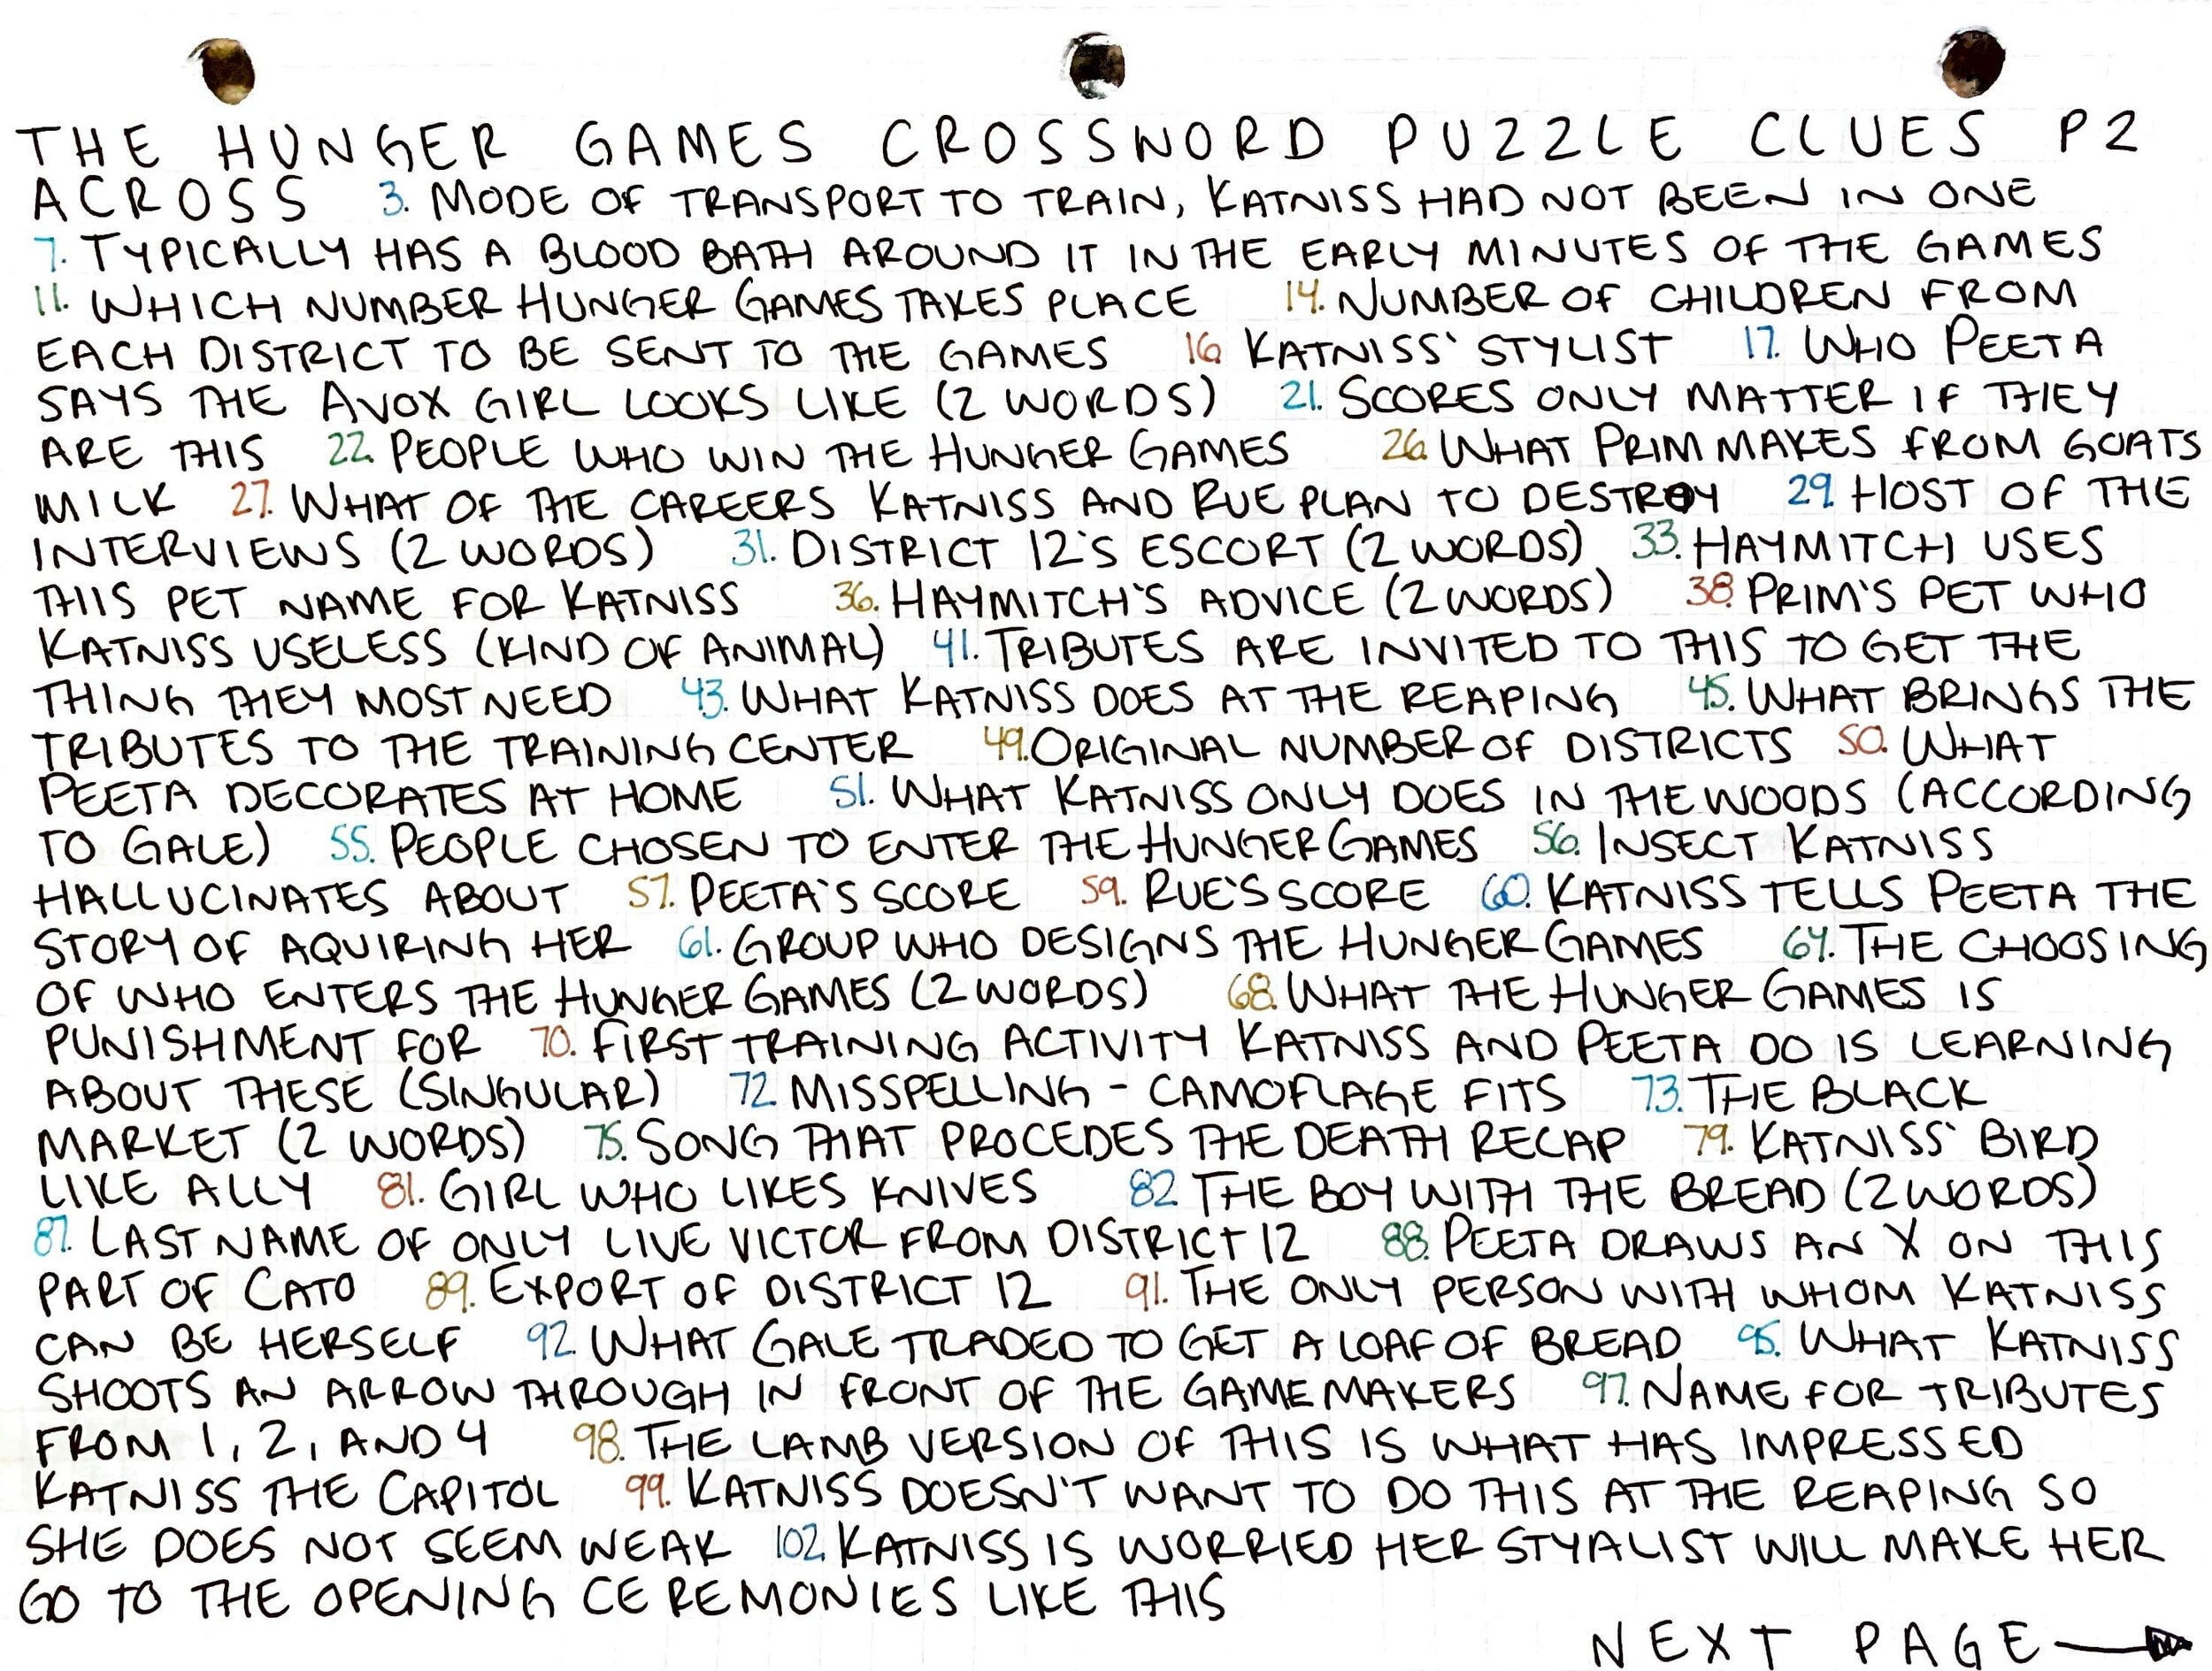 THE HUNGER GAMES CROSSWORD PUZZLE CLUES P2
ACROSS 3. MODE OF TRANSPORT TO TRAIN, KATNISS HAD NOT BEEN IN ONE
7. TYPICALLY HAS A BLOOD BATH AROUND IT IN THE EARLY MINUTES OF THE GAMES
11. WHICH NUMBER HUNGER GAMES TAKES PLACE 14. NUMBER OF CHILDREN FROM
EACH DISTRICT TO BE SENT TO THE GAMES 16. KATNISS' STYLIST 17. WHO PEETA
SAYS THE AVOX GIRL LOOKS LIKE (2 WORDS) 21. SCORES ONLY MATTER IF THEY
ARE THIS 22. PEOPLE WHO WIN THE HUNGER GAMES 26. WHAT PRIM MAKES FROM GOATS
MILK 27. WHAT OF THE CAREERS KATNISS AND RUE PLAN TO DESTROY 29. HOST OF THE
INTERVIEWS (2 WORDS) 31. DISTRICT 12'S ESCORT (2 WORDS) 33. HAYMITCH USES
THIS PET NAME FOR KATNISS 36. HAYMITCH'S ADVICE (2 WORDS) 38. PRIM'S PET WHO
KATNISS USELESS (KIND OF ANIMAL) 41. TRIBUTES ARE INVITED TO THIS TO GET THE
THING THEY MOST NEED 43. WHAT KATNISS DOES AT THE REAPING 45. WHAT BRINGS THE
TRIBUTES TO THE TRAINING CENTER 49. ORIGINAL NUMBER OF DISTRICTS 50. WHAT
PEETA DECORATES AT HOME 51. WHAT KATNISS ONLY DOES IN THE WOODS (ACCORDING
TO GALE) 55. PEOPLE CHOSEN TO ENTER THE HUNGER GAMES 56. INSECT KATNISS
HALLUCINATES ABOUT 57. PEETA'S SCORE 59. RUE'S SCORE 60. KATNISS TELLS PEETA THE
STORY OF AQUIRING HER 61. GROUP WHO DESIGNS THE HUNGER GAMES 64. THE CHOOSING
OF WHO ENTERS THE HUNGER GAMES (2 WORDS) 68. WHAT THE HUNGER GAMES IS
PUNISHMENT FOR 70. FIRST TRAINING ACTIVITY KATNISS AND PEETA DO IS LEARNING
ABOUT THESE (SINGULAR) 72. MISSPELLING - CAMOFLAGE FITS 73. THE BLACK
MARKET (2 WORDS) 75. SONG THAT PROCEDES THE DEATH RECAP 79. KATNISS' BIRD
LIKE ALLY 81. GIRL WHO LIKES KNIVES 82. THE BOY WITH THE BREAD (2 WORDS)
87. LAST NAME OF ONLY LIVE VICTOR FROM DISTRICT 12 88. PEETA DRAWS AN X ON THIS
PART OF CATO 89. EXPORT OF DISTRICT 12 91. THE ONLY PERSON WITH WHOM KATNISS
CAN BE HERSELF 92. WHAT GALE TRADED TO GET A LOAF OF BREAD 95. WHAT KATNISS
SHOOTS AN ARROW THROUGH IN FRONT OF THE GAMEMAKERS 97. NAME FOR TRIBUTES
FROM 1, 2, AND 4 98. THE LAMB VERSION OF THIS IS WHAT HAS IMPRESSED
KATNISS THE CAPITOL 99. KATNISS DOESN'T WANT TO DO THIS AT THE REAPING SO
SHE DOES NOT SEEM WEAK 102. KATNISS IS WORRIED HER STYALIST WILL MAKE HER
GO TO THE OPENING CEREMONIES LIKE THIS
NEXT PAGE